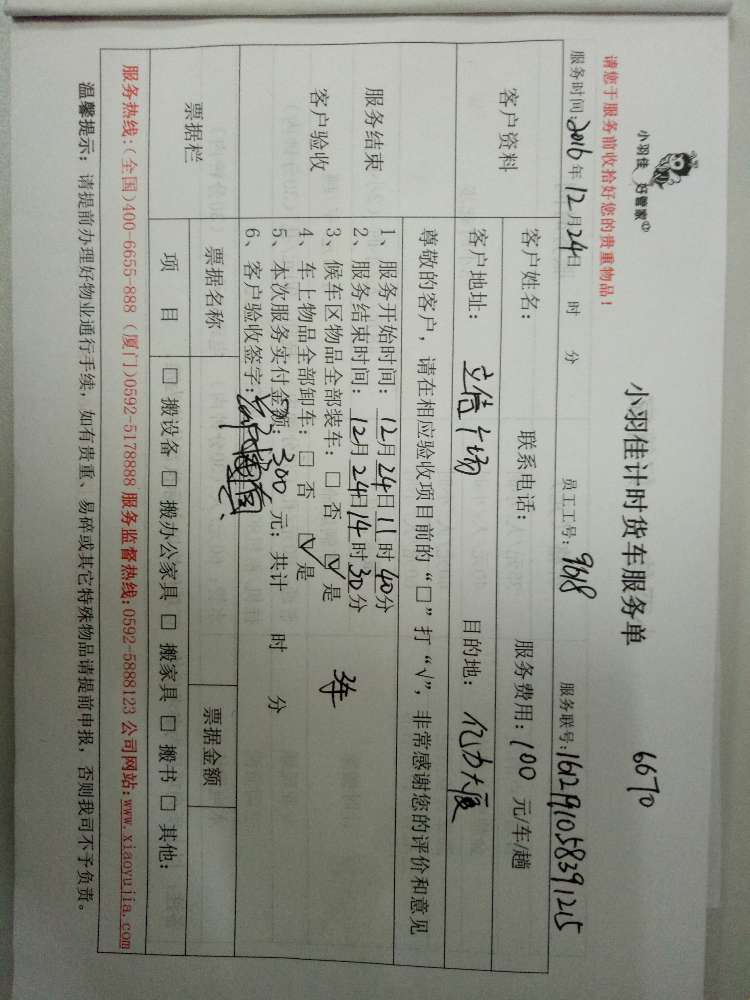 小羽佳 好管家
小羽佳计时货车服务单 6670
请您于服务前收拾好您的贵重物品！
服务时间:2016年12月24日 时 分 员工工号: 9618 服务联号:16129105839125
客户资料
客户姓名： 联系电话： 服务费用：100 元/车/趟
客户地址： 立信广场 目的地： 亿力大厦
尊敬的客户，请在相应验收项目前的“□”打“√”，非常感谢您的评价和意见
服务结束
客户验收
1、服务开始时间：12月24日11时40分
2、服务结束时间：12月24日14时30分
3、候车区物品全部装车：□ 否 ☑ 是
4、车上物品全部卸车：□ 否 ☑ 是 3车
5、本次服务实付金额：300 元；共计 时 分
6、客户验收签字：
票据栏
票据名称 票据金额
项 目 □ 搬设备 □ 搬办公家具 □ 搬家具 □ 搬书 □ 其他：
服务热线:(全国)400-6655-888 (厦门)0592-5178888 服务监督热线:0592-5888123 公司网站:www.xiaoyujia.com
温馨提示：请提前办理好物业通行手续，如有贵重、易碎或其它特殊物品请提前申报，否则我司不予负责。